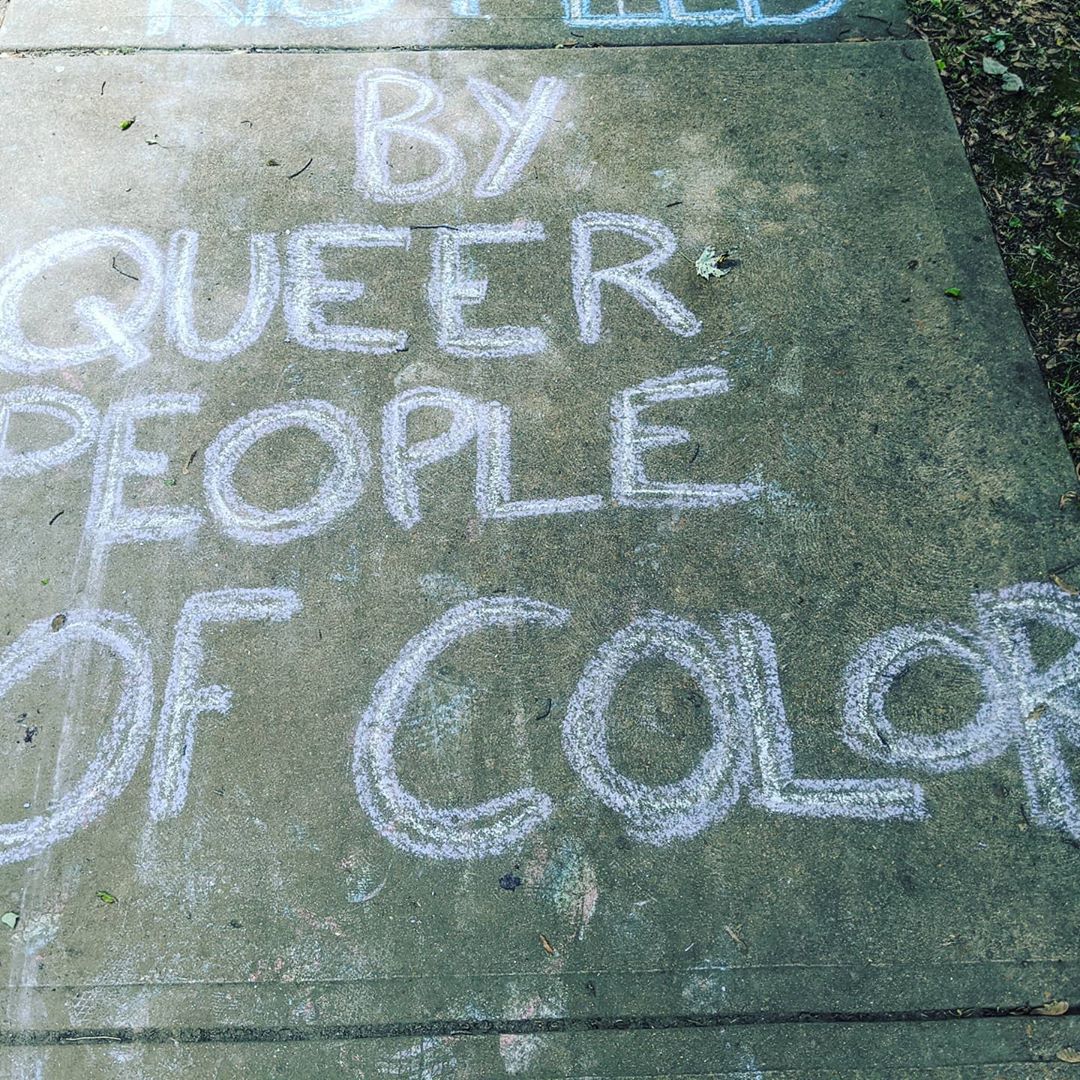 BY
QUEER
PEOPLE
OF COLOR